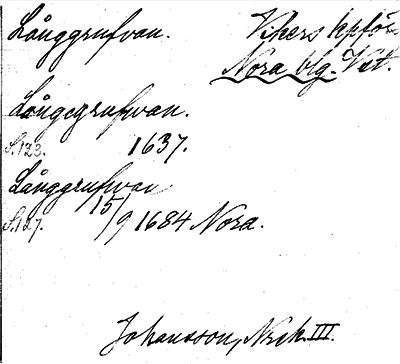 Långgrufvan. Vikers kpför.
Nora blg. Vstm.
Långegrufwan.
S. 123. 1637.
Långgrufwan
S. 127. 15/9 1684 Nora.
Johansson, Nrsk. III.